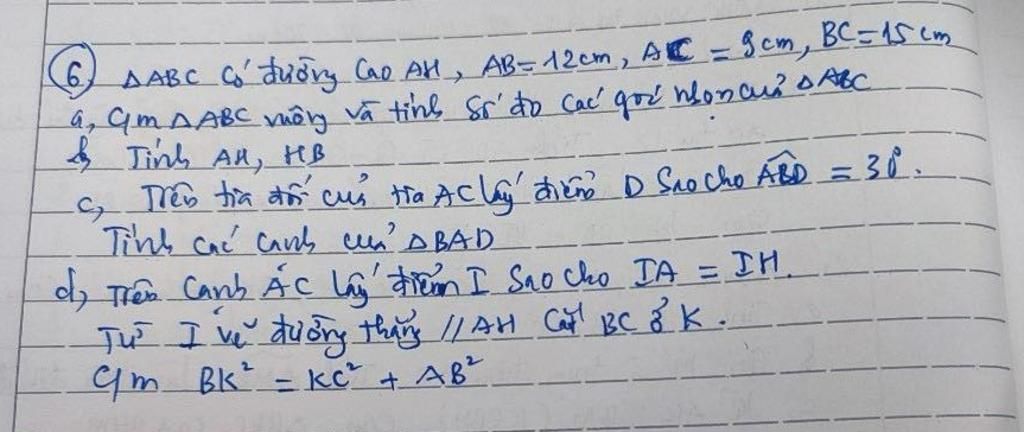 ⑥ △ABC Có đường Cao AH, AB = 12cm, AC = 9cm, BC = 15cm
a, C/m △ABC vuông và tính Số đo các góc nhọn của △ABC
b, Tính AH, HB
c, Trên tia đối của tia AC lấy điểm D Sao cho \widehat{ABD} = 30°.
Tính các cạnh của △BAD
d, Trên cạnh AC lấy điểm I Sao cho IA = IH.
Từ I vẽ đường thẳng // AH Cắt BC ở K.
C/m BK² = KC² + AB²